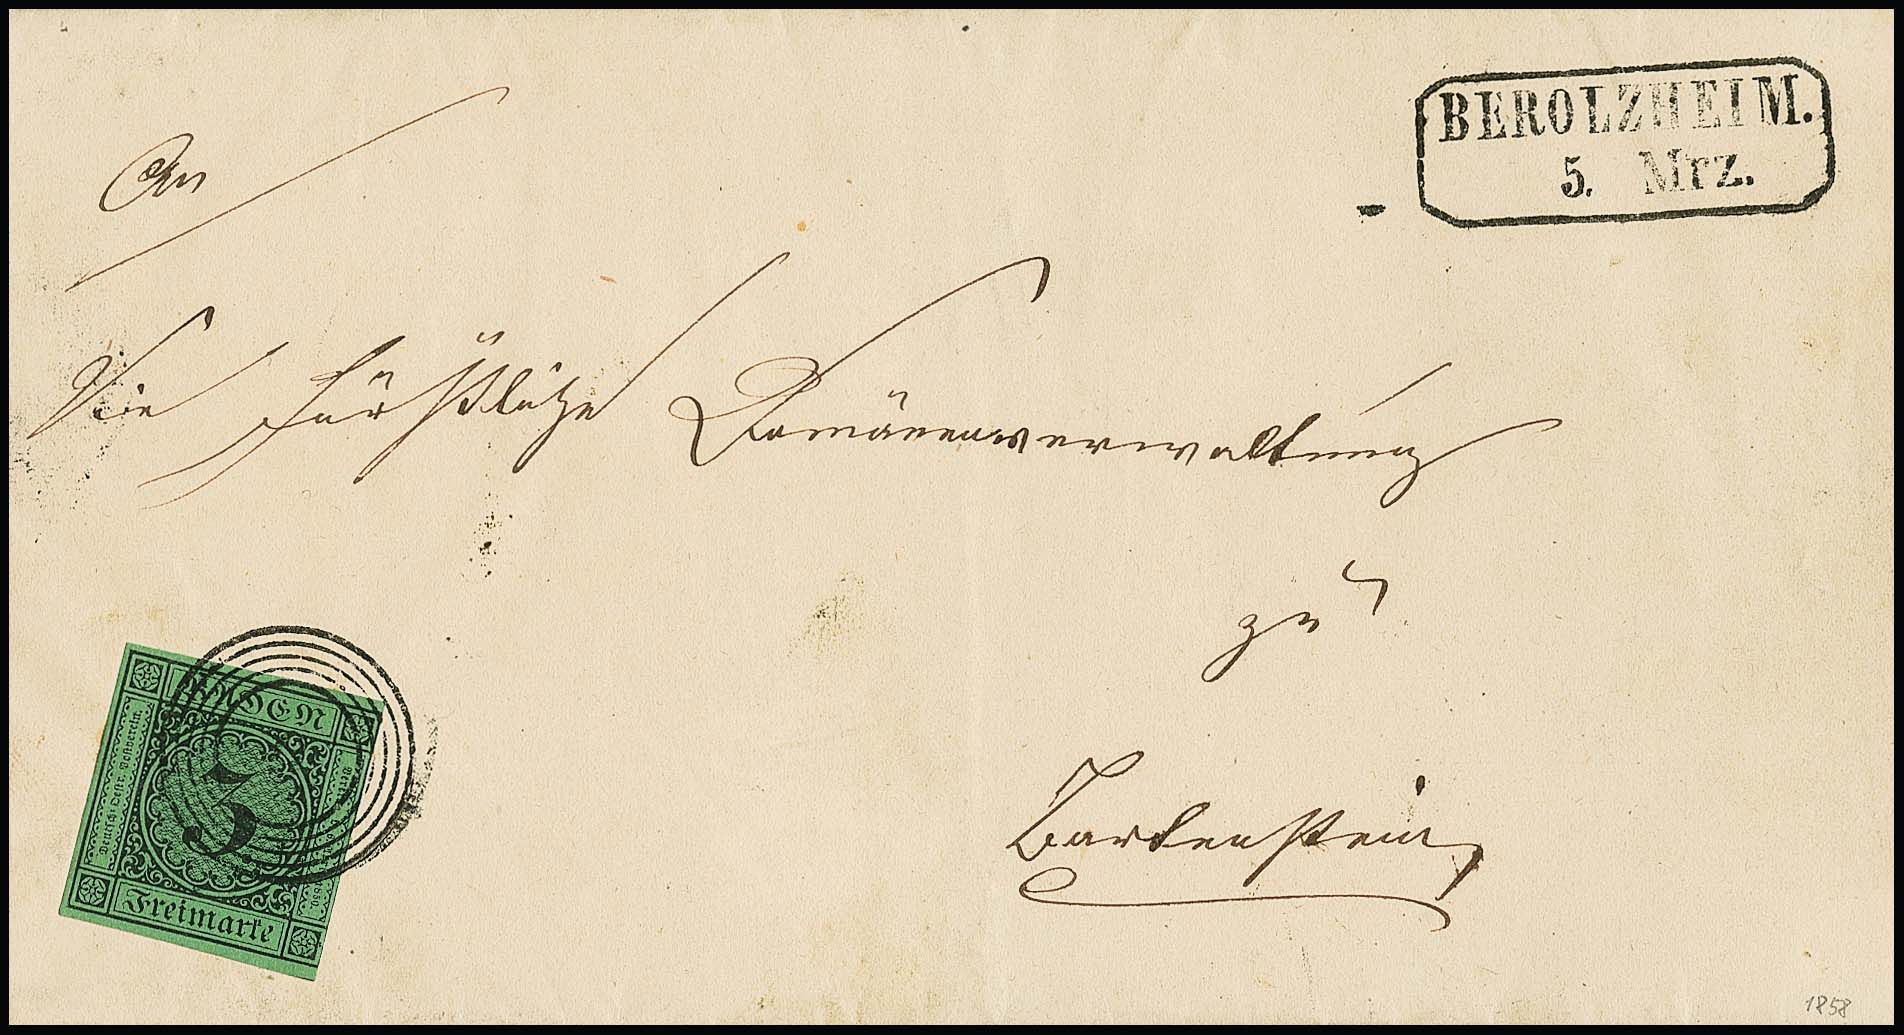 BEROLZHEIM.
5. Mrz.
An
Die Fürstliche Domänenverwaltung
zu
Bartenstein
BADEN
Deutsch: Oestr. Postverein.
3.
1850.
Freimarke
1858